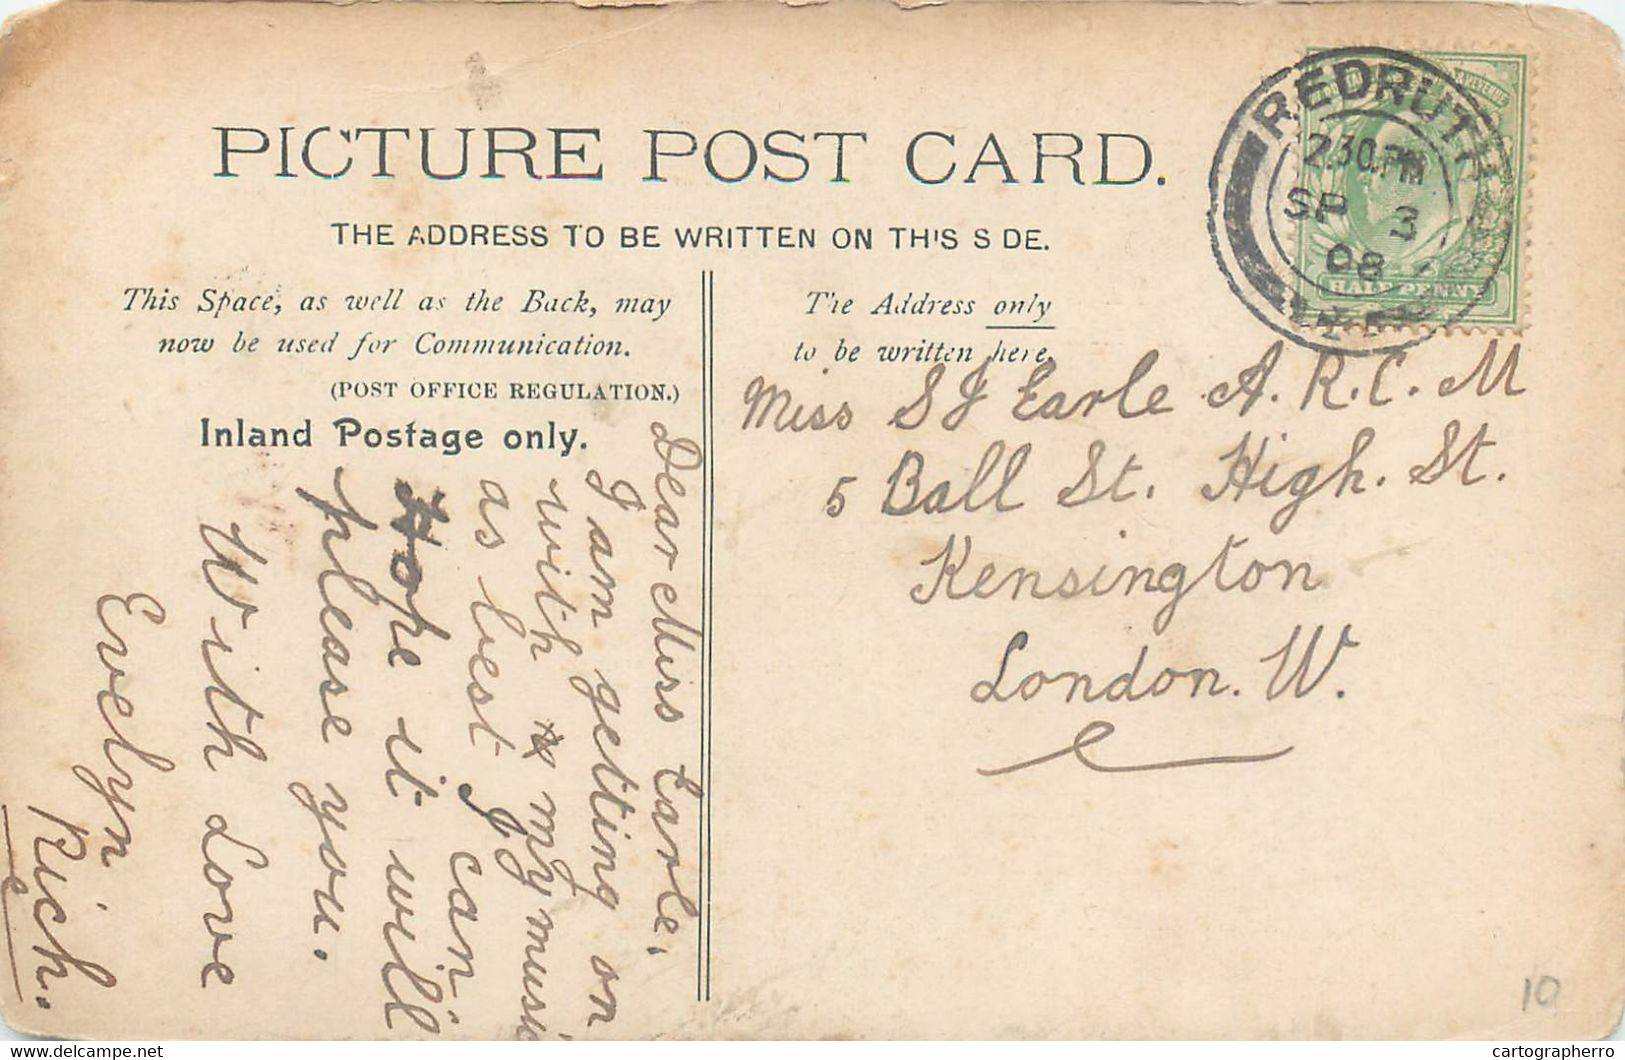 PICTURE POST CARD.
THE ADDRESS TO BE WRITTEN ON THIS SIDE.
This Space, as well as the Back, may
now be used for Communication.
(POST OFFICE REGULATION.)
Inland Postage only.
The Address only
to be written here.
REDRUTH
2.30.PM
SP 3
08
HALF PENNY
Miss S J Earle A.R.C.M
5 Ball St. High. St.
Kensington
London. W.
Dear Miss Earle,
I am getting on
with my music
as best I can
Hope it will
please you.
With Love
Evelyn
Rich.
10
www.delcampe.net
cartographerro